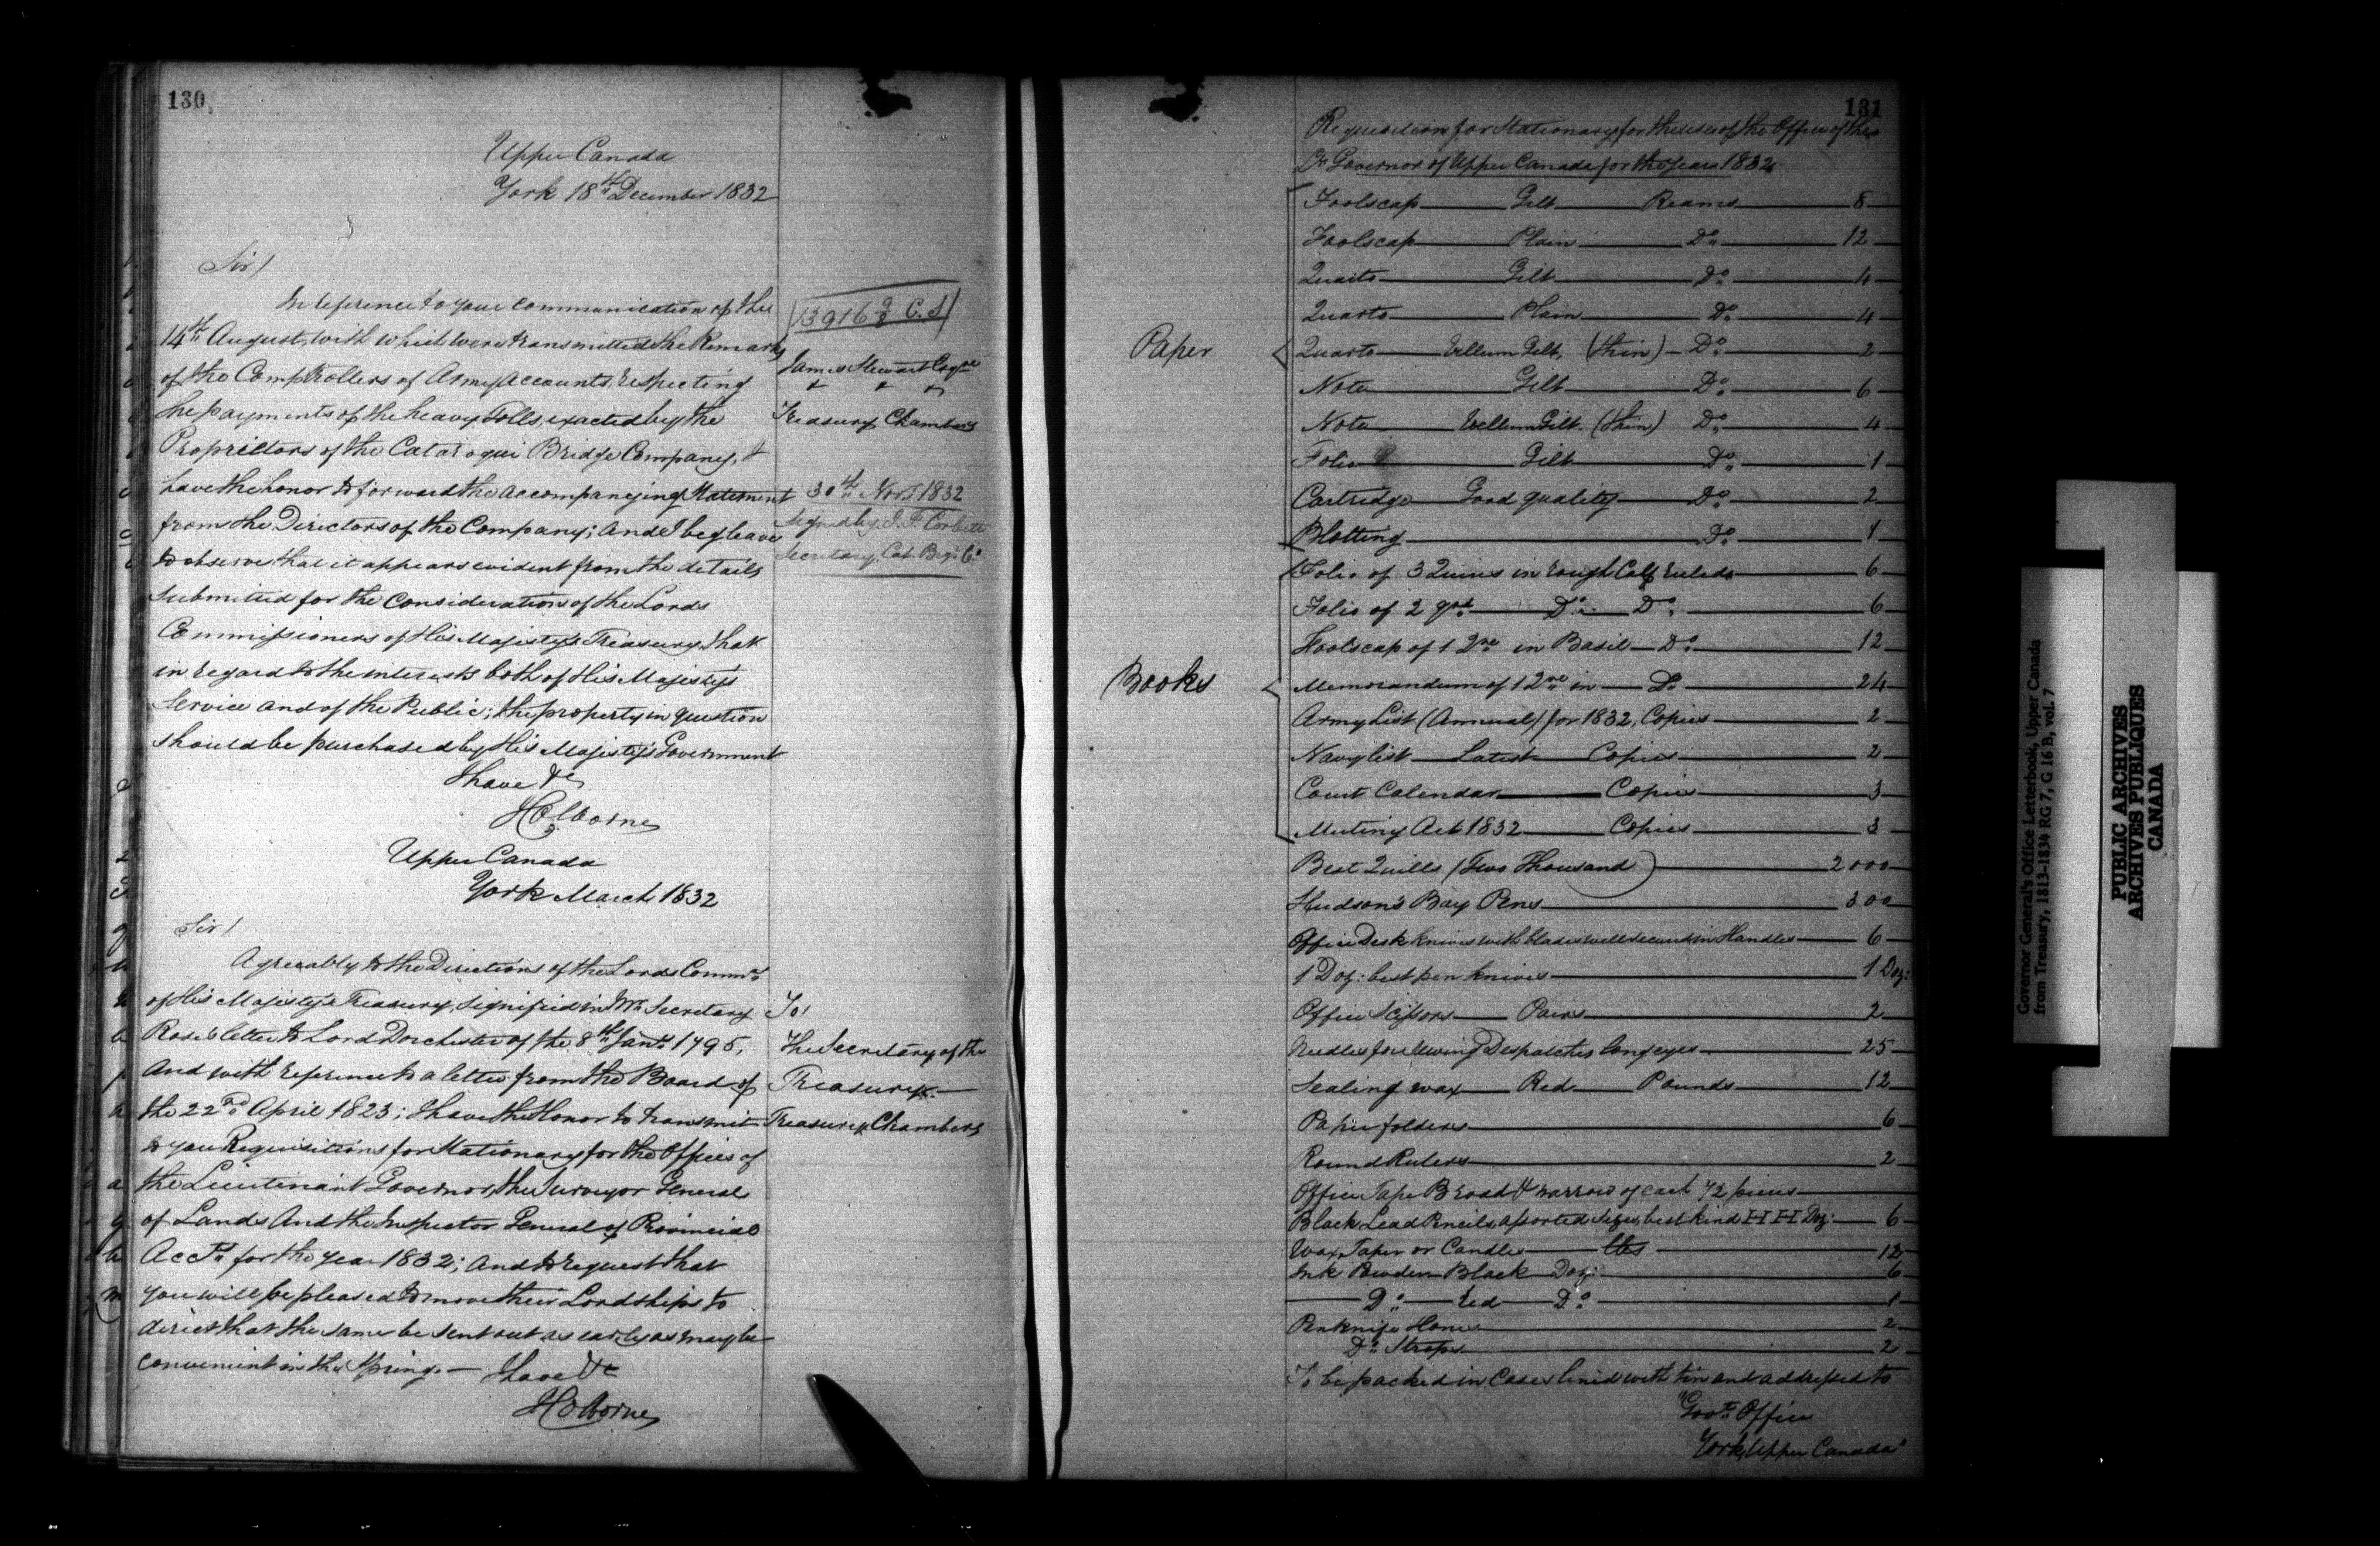 130
Upper Canada
York 18th December 1832
Sir/
In reference to your communication of the
14th August, with which were transmitted the Remarks
of the Comptrollers of Army Accounts respecting
the payments of the heavy Tolls, exacted by the
Proprietors of the Cataraqui Bridge Company, I
have the honor to forward the accompanying Statement
from the Directors of the Company; And I beg leave
to observe that it appears evident from the details
submitted for the consideration of the Lords
Commissioners of His Majesty's Treasury, that
in regard to the interests both of His Majesty's
Service and of the Public; the property in question
should be purchased by His Majesty's Government
I have &c
J Colborne
13916 C.S
James Stewart Esqre
& & &
Treasury Chambers
30th Novr 1832
Signed by J. F. Corbett
Secretary, Cat. Brge Co
Upper Canada
York March 1832
Sir/
Agreeably to the Directions of the Lords Commrs
of His Majesty's Treasury, signified in Mr Secretary
Rose's letter to Lord Dorchester of the 8th Jany 1795,
And with reference to a letter from the Board of
the 22nd April 1823; I have the Honor to transmit
to you Requisitions for Stationary for the Offices of
the Lieutenant Governor, the Surveyor General
of Lands And the Inspector General of Provincial
Accts for the year 1832; And to request that
you will be pleased to move their Lordships to
direct that the same be sent out as early as may be
convenient in the Spring. — I have &c
J Colborne
To/
The Secretary of the
Treasury
Treasury Chambers
131
Requisition for Stationary for the use of the Office of the
Lt Governor of Upper Canada for the year 1832
Paper
Foolscap Gilt Reams 8
Foolscap Plain Do 12
Quarto Gilt Do 4
Quarto Plain Do 4
Quarto Vellum Gilt, (thin) Do 2
Note Gilt Do 6
Note Vellum Gilt. (thin) Do 4
Folio Gilt Do 1
Cartridge Good quality Do 2
Blotting Do 1
Books
Folio of 3 Quires in rough Calf ruled 6
Folio of 2 qrs Do Do 6
Foolscap of 1 Qre in Basil Do 12
Memorandum of 1 Qre in Do 24
Army List (Annual) for 1832, Copies 2
Navy list Latest Copies 2
Court Calendar Copies 3
Mutiny Act 1832 Copies 3
Best Quills (Two Thousand) 2000
Hudson's Bay Pens 300
Office Desk knives with blades well secured in Handles 6
1 Doz: best pen knives 1 Doz:
Office Scissors Pairs 2
Needles for sewing Despatches long eyes 25
Sealing wax Red Pounds 12
Paper folders 6
Round Rulers 2
Office Tape Broad & narrow of each 72 pieces
Black Lead Pencils, assorted Sizes, best kind H H Doz: 6
Wax Taper or Candles lbs 12
Ink Powder Black Doz: 6
Do Red Do 1
Penknife Hones 2
Do Strops 2
To be packed in Cases lined with tin and addressed to
"Govt Office
York, Upper Canada"
Governor General's Office Letterbook, Upper Canada
from Treasury, 1813-1834 RG 7, G 16 B, vol. 7
PUBLIC ARCHIVES
ARCHIVES PUBLIQUES
CANADA